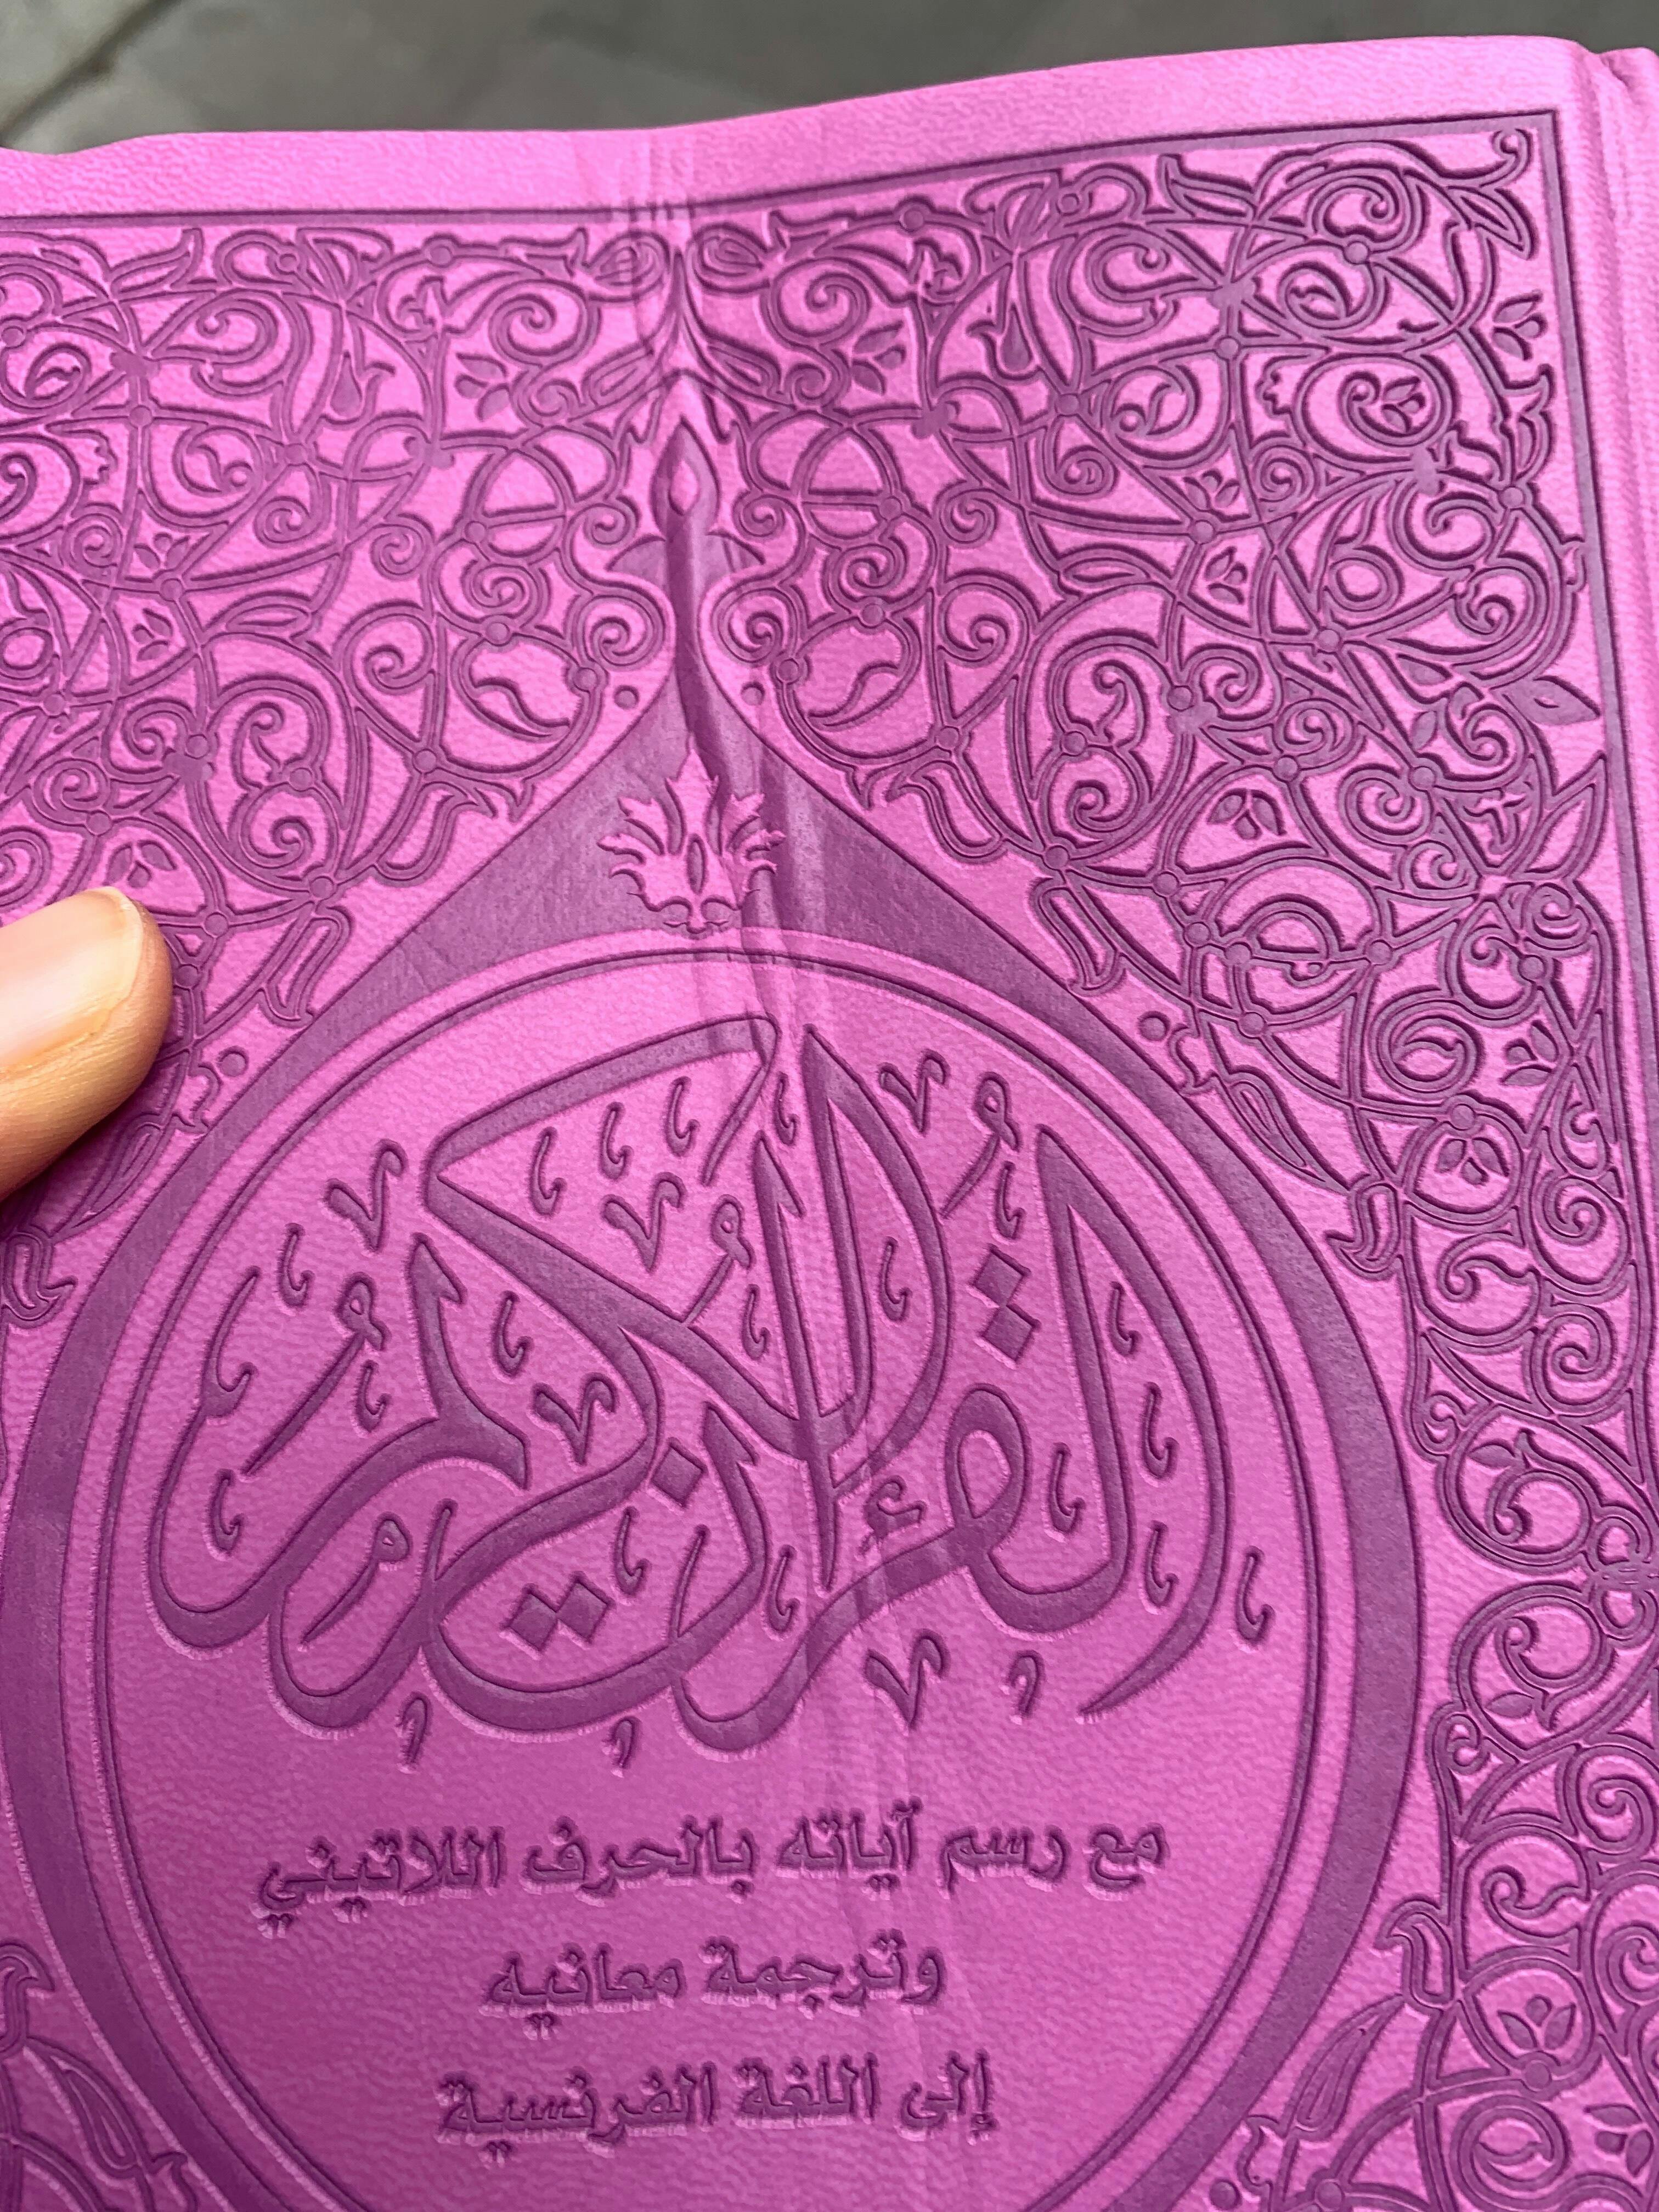 القرآن الكريم
مع رسم آياته بالحرف اللاتيني
وترجمة معانيه
إلى اللغة الفرنسية